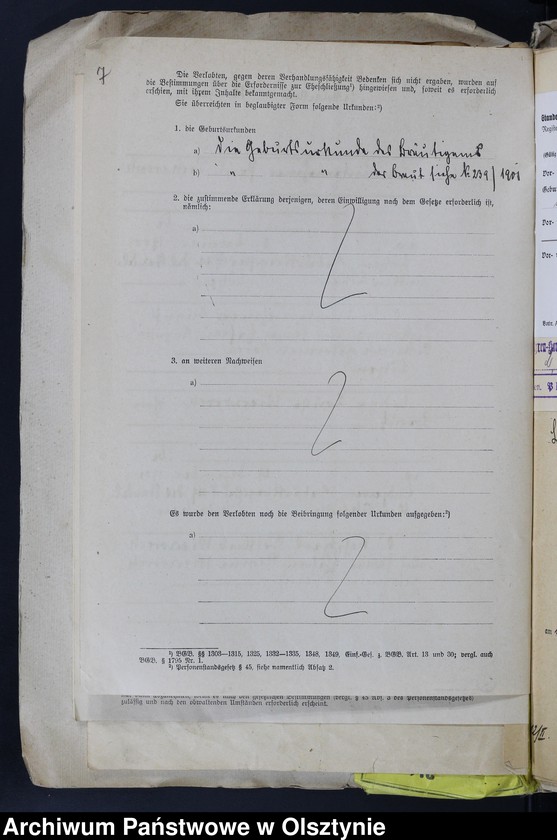 7
Die Verlobten, gegen deren Verhandlungsfähigkeit Bedenken sich nicht ergaben, wurden auf
die Bestimmungen über die Erfordernisse zur Eheschließung¹) hingewiesen und, soweit es erforderlich
erschien, mit ihrem Inhalte bekanntgemacht.
Sie überreichten in beglaubigter Form folgende Urkunden:²)
1. die Geburtsurkunden
a) die Geburtsurkunde des Bräutigams
b) " " der Braut siehe N. 239/1901
2. die zustimmende Erklärung derjenigen, deren Einwilligung nach dem Gesetze erforderlich ist,
nämlich:
a)
3. an weiteren Nachweisen
a)
Es wurde den Verlobten noch die Beibringung folgender Urkunden aufgegeben:²)
a)
¹) BGB. §§ 1303—1315, 1325, 1332—1335, 1348, 1349, Einf.-Ges. z. BGB. Art. 13 und 30; vergl. auch
BGB. § 1795 Nr. 1.
²) Personenstandsgesetz § 45, siehe namentlich Absatz 2.
zulässig und nach den obwaltenden Umständen erforderlich erscheint.
Archiwum Państwowe w Olsztynie